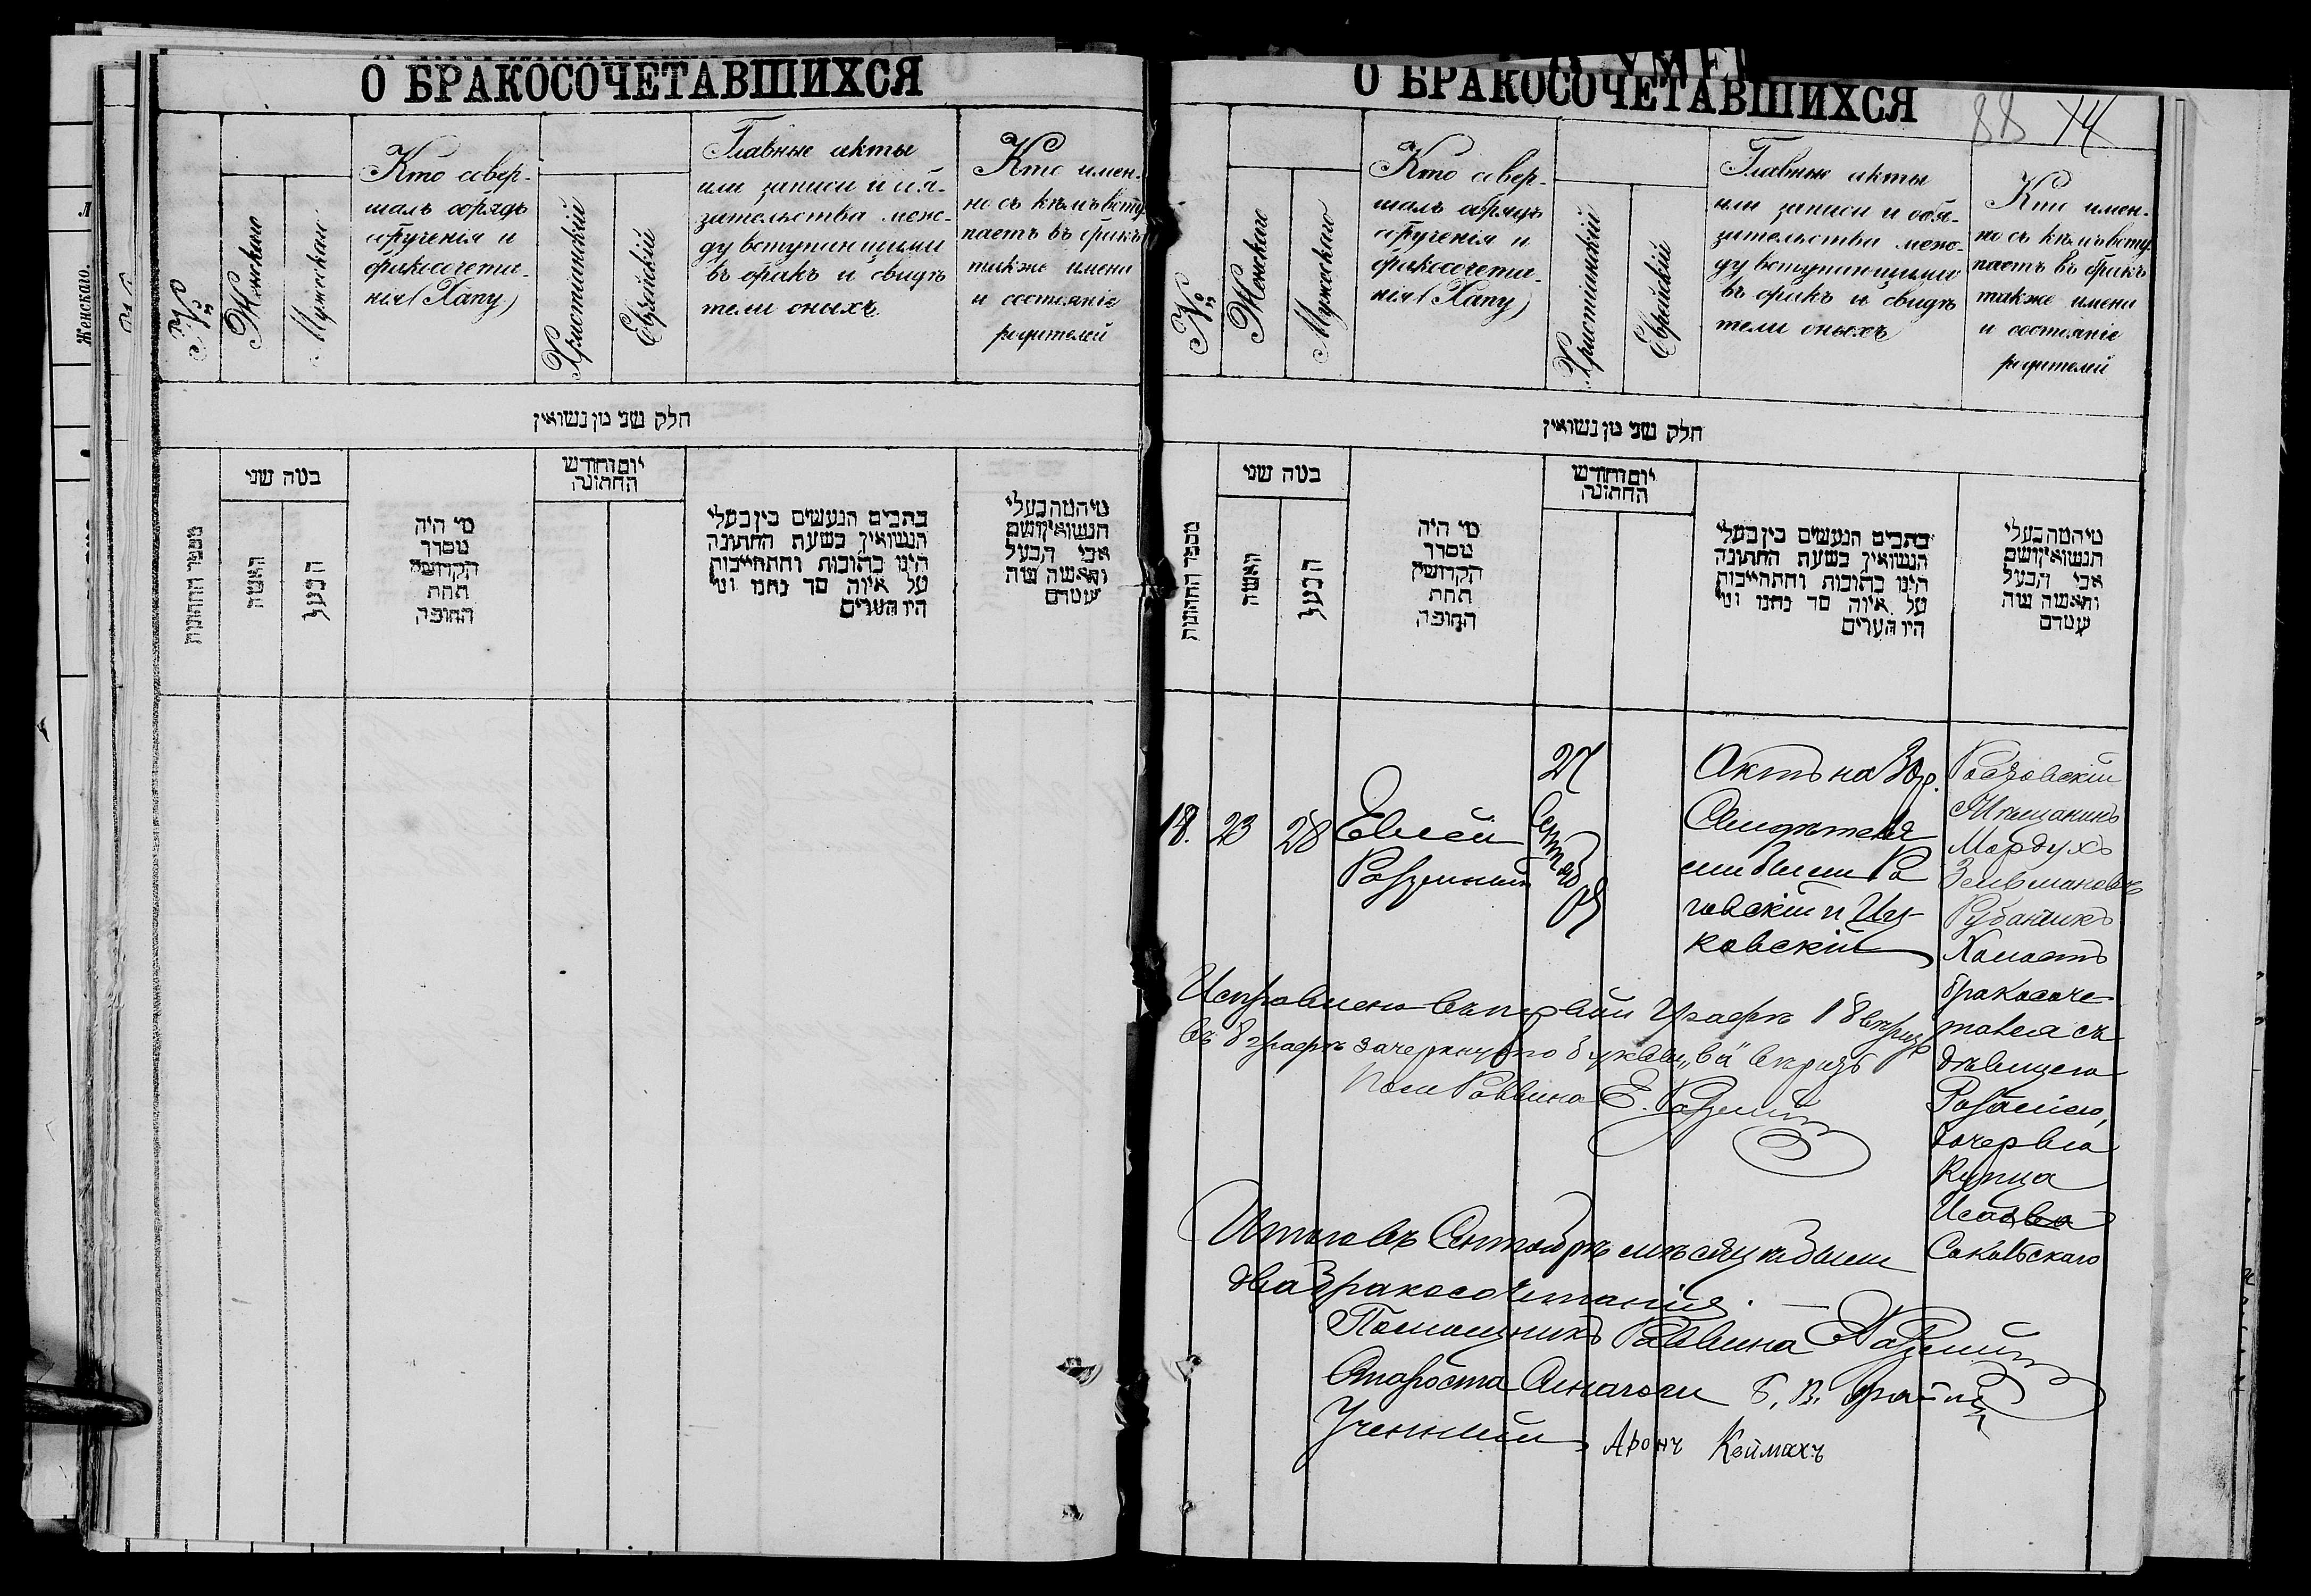 О БРАКОСОЧЕТАВШИХСЯ
№
Женскаго
Мужескаго
Кто совер-
шалъ обрядъ
обрученія и
бракосочета-
нія (Хапу)
Христіанскій
Еврейскій
Главные акты
или записи и обя-
зательства меж-
ду вступающими
въ бракъ и свидѣ
тели оныхъ.
Кто имен-
но съ кѣмъ всту
паетъ въ бракъ
также имена
и состояніе
родителей
חלק שני מן נשואין
מספר החתונות
כמה שני
האשה
הבעל
מי היה
מסדר
הקדושין
תחת
החופה
יום וחודש
החתונה
כתבים הנעשים בין בעלי
הנשואין בשעת החתונה
היינו כתובות והתחייבות
על איזה סך נתנו ומי
היו העדים
מי המה בעלי
הנשואין ושם
אבי הבעל
והאשה ומה
שמם
О БРАКОСОЧЕТАВШИХСЯ
88 74
№
Женскаго
Мужескаго
Кто совер-
шалъ обрядъ
обрученія и
бракосочета-
нія (Хапу)
Христіанскій
Еврейскій
Главные акты
или записи и обя-
зательства меж-
ду вступающими
въ бракъ и свидѣ
тели оныхъ
Кто имен-
но съ кѣмъ всту
паетъ въ бракъ
также имена
и состояніе
родителей
חלק שני מן נשואין
מספר החתונות
כמה שני
האשה
הבעל
מי היה
מסדר
הקדושין
תחת
החופה
יום וחודש
החתונה
כתבים הנעשים בין בעלי
הנשואין בשעת החתונה
היינו כתובות והתחייבות
על איזה סך נתנו ומי
היו העדים
מי המה בעלי
הנשואין ושם
אבי הבעל
והאשה ומה
שמם
18.
23
28
27
Сентяб
ря
Актъ на
Свидѣтеля
ми были Ро
говскій и
ковскій
Мѣщанинъ
Мордухъ
Зельмановъ
Рубанчикъ
Холостъ
бракосоче-
тался съ
дѣвицею
Розаліею,
дочерью
Купца
Исаа
Сокольскаго
Исправлено въ первой графѣ 18 вѣрно
въ 8 графѣ зачеркнуто буквы „ва" вѣрно
Пом Раввина Е.
Итого въ Сентябрѣ мѣсяцѣ было
два бракосочетанія. —
Помощникъ Раввина
Староста Синагоги Б. В.
Ученый Аронъ Коймахъ